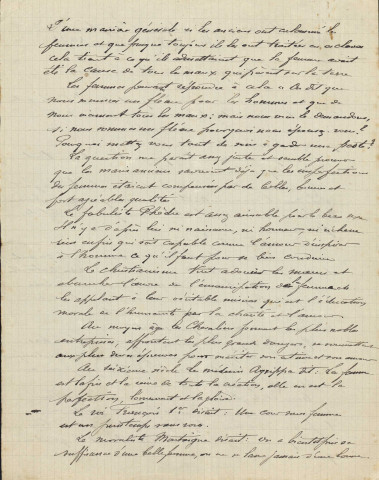 D'une manière générale si les anciens ont calomnié la
femme et que presque toujours ils les ont traitées en esclaves
cela tient à ce qu'ils admettaient que la femme avait
été la cause de tous les maux qui pèsent sur la terre
Les femmes peuvent répondre à cela : On dit que
nous sommes un fléau pour les hommes et que de
nous viennent tous les maux ; mais nous vous le demandons,
si nous sommes un fléau pourquoi nous épousez-vous?
Pourquoi mettez vous tant de soin à garder une peste?
La question me paraît assez juste et semble prouver
que les maris anciens savaient déjà que les imperfections
des femmes étaient compensées par de belles, bonnes et
fort agréables qualités
Le fabuliste Phèdre est assez aimable pour le beau sexe
Il n'y a d'après lui ni naissance, ni honneurs, ni richesse
rien enfin qui soit capable comme l'amour d'inspirer
à l'homme ce qu'il faut pour se bien conduire
Le christianisme vint adoucir les mœurs et
l'œuvre de l'émancipation des femmes
les appelait à leur véritable mission qui est l'éducation
morale de l'humanité par la charité et l'amour
Au moyen âge les Chevaliers forment les plus nobles
entreprises, affrontent les plus grands dangers, se soumettent
aux plus dures épreuves pour mériter son estime et son amour
Au seizième siècle le médecin Agrippa dit : La femme
est la fin et la reine de toute la création, elle en est la
perfection, l'ornement et la gloire
Le roi François 1er disait : Une cour sans femmes
est un printemps sans roses
Le moraliste Montaigne disait : On a bientôt pris sa
suffisance d'une belle femme, on ne se lasse jamais d'une bonne